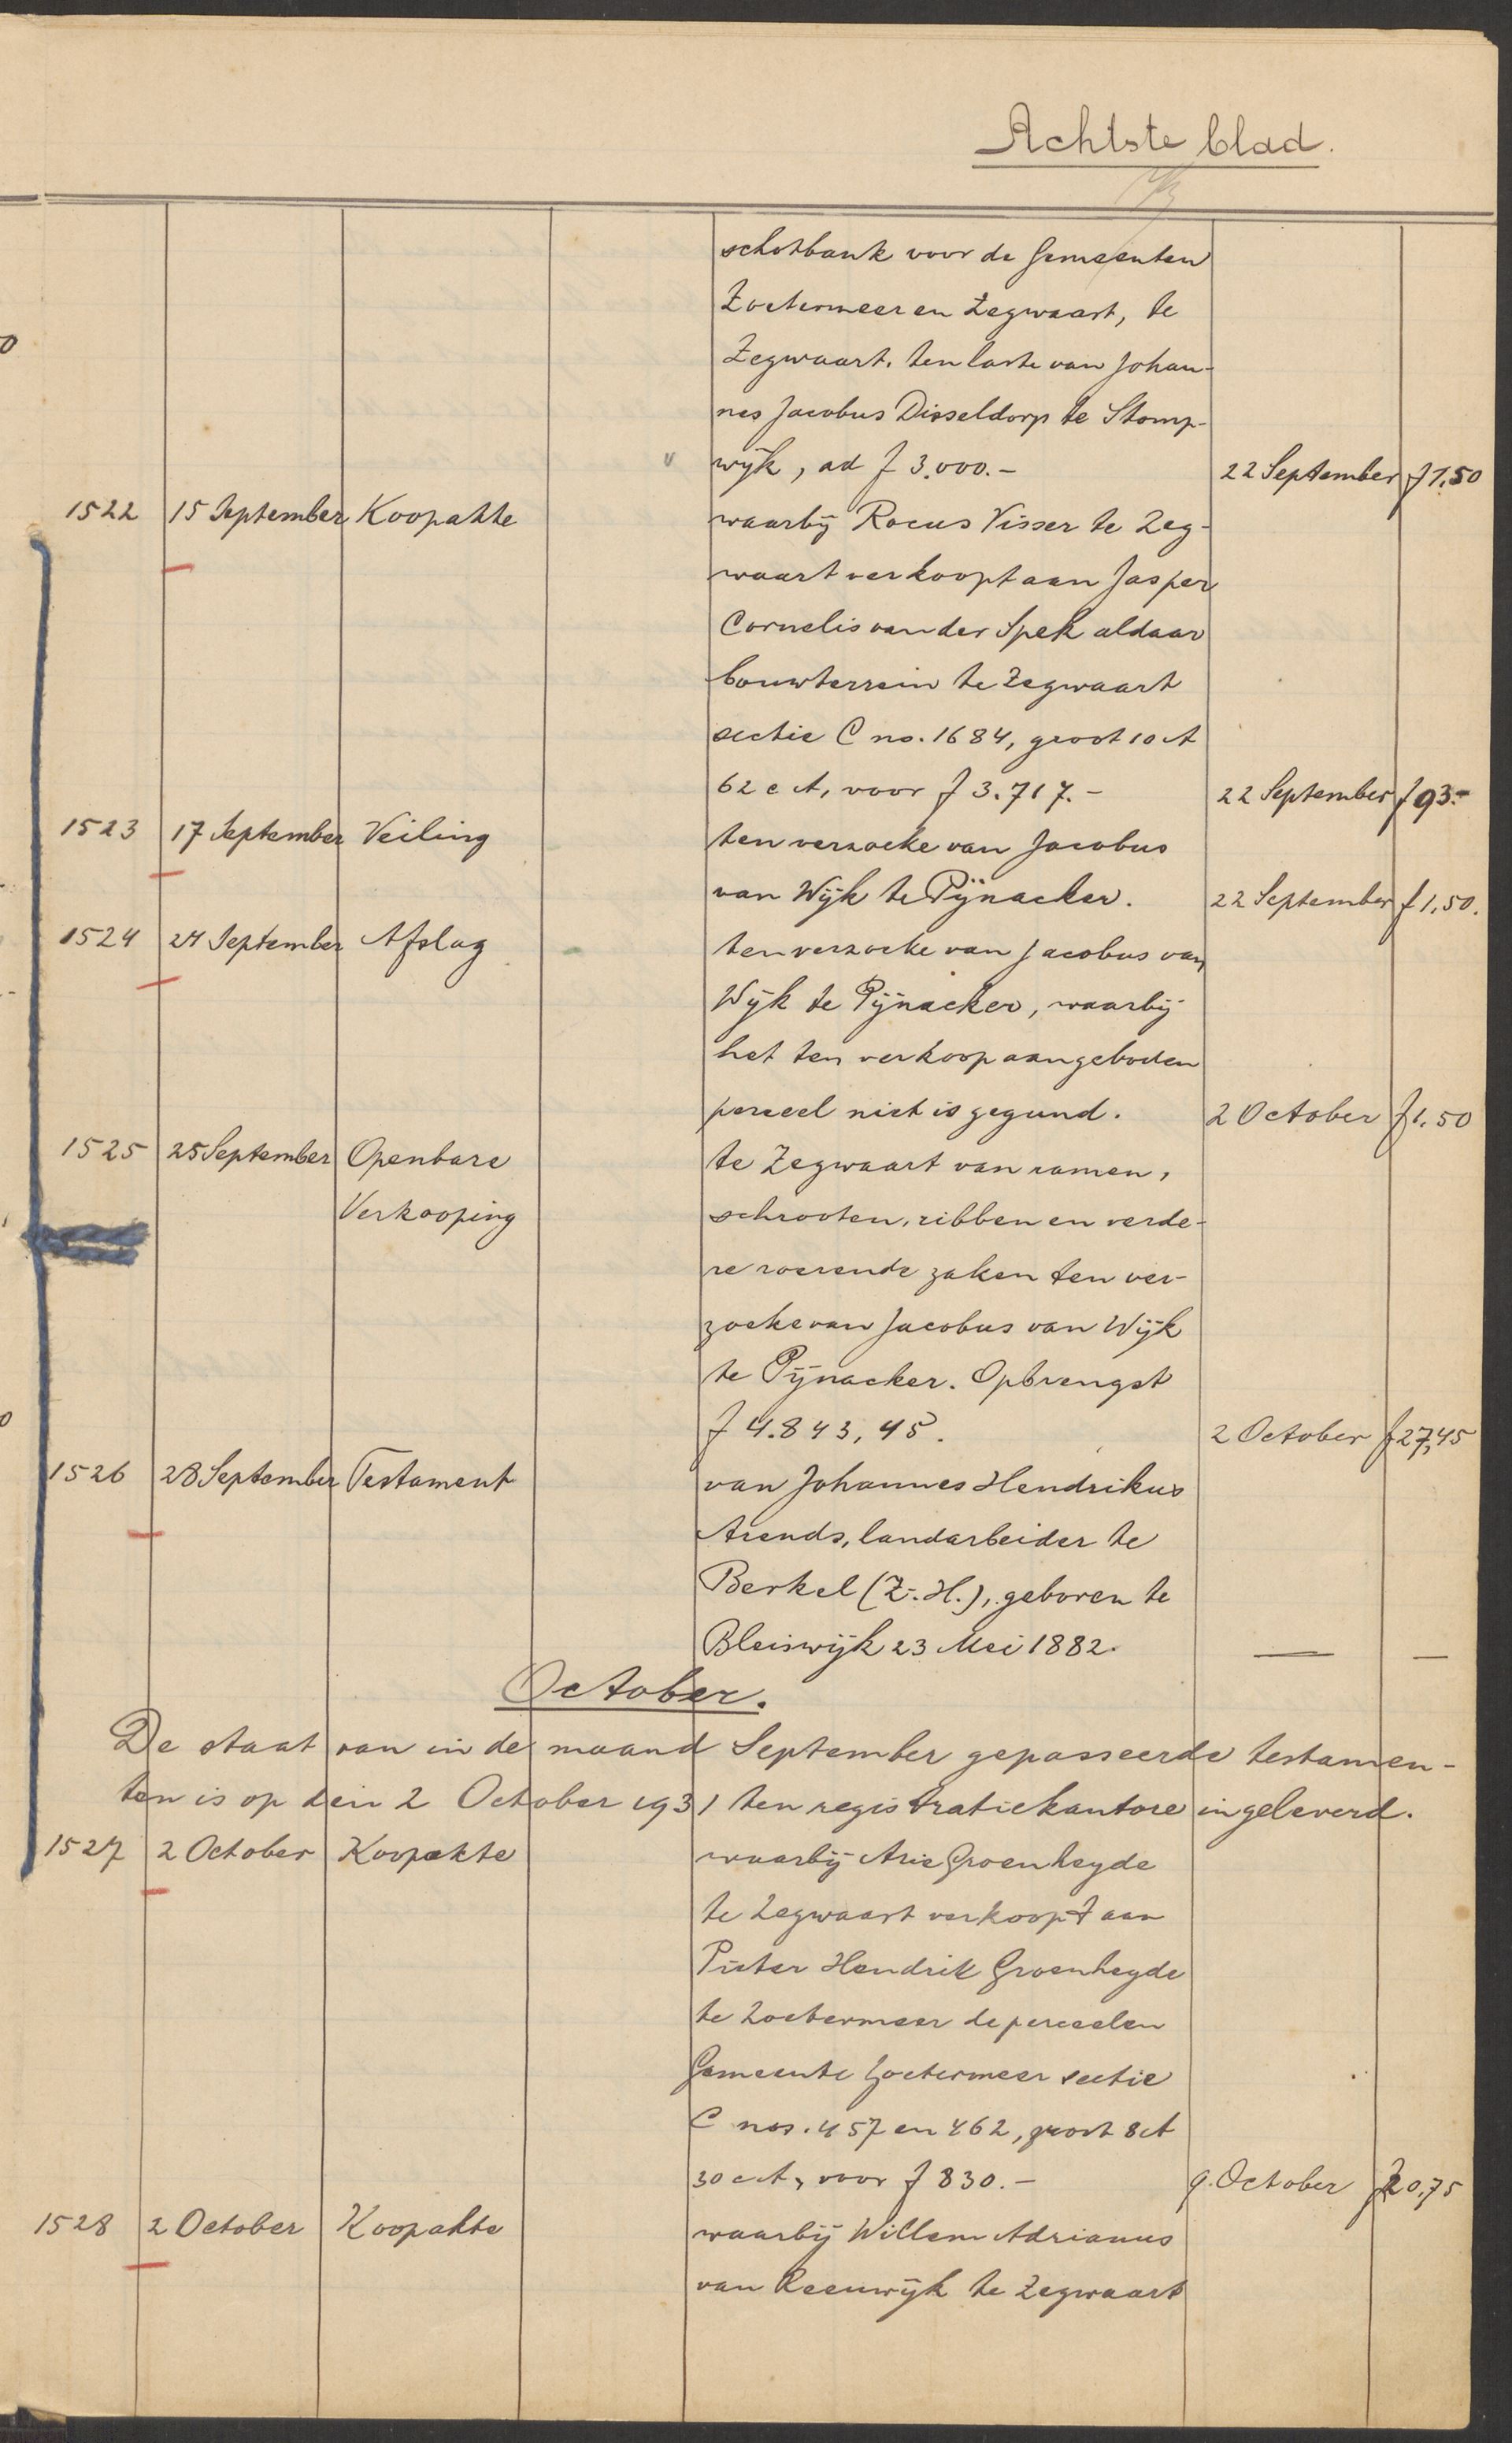 Achtste blad.
schotbank voor de Gemeenten
Zoetermeer en Zegwaart, te
Zegwaart, ten laste van Johan-
nes Jacobus Disseldorp te Stomp-
wijk, ad f 3.000.- 22 September f 1,50
1522 15 September Koopakte waarbij Rocus Visser te Zeg-
waart verkoopt aan Jasper
Cornelis van der Spek aldaar
bouwterrein te Zegwaart
sectie C no. 1684, groot 10 A
62 c A, voor f 3.717.- 22 September f 93.-
1523 17 September Veiling ten verzoeke van Jacobus
van Wijk te Pijnacker. 22 September f 1,50.
1524 24 September Afslag ten verzoeke van Jacobus van
Wijk te Pijnacker, waarbij
het ten verkoop aangeboden
perceel niet is gegund. 2 October f 1,50
1525 25 September Openbare te Zegwaart van ramen,
Verkooping schrooten, ribben en verde-
re roerende zaken ten ver-
zoeke van Jacobus van Wijk
te Pijnacker. Opbrengst
f 4.843,45. 2 October f 27,45
1526 28 September Testament van Johannes Hendrikus
Arends, landarbeider te
Berkel (Z.-H.), geboren te
Bleiswijk 23 Mei 1882. — —
October.
De staat van in de maand September gepasseerde testamen-
ten is op den 2 October 1931 ten registratiekantore ingeleverd.
1527 2 October Koopakte waarbij Arie Groenheyde
te Zegwaart verkoopt aan
Pieter Hendrik Groenheyde
te Zoetermeer de perceelen
Gemeente Zoetermeer sectie
C nos. 457 en 462, groot 8 A
30 c A, voor f 830.- 9 October f 20,75
1528 2 October Koopakte waarbij Willem Adrianus
van Reeuwijk te Zegwaart